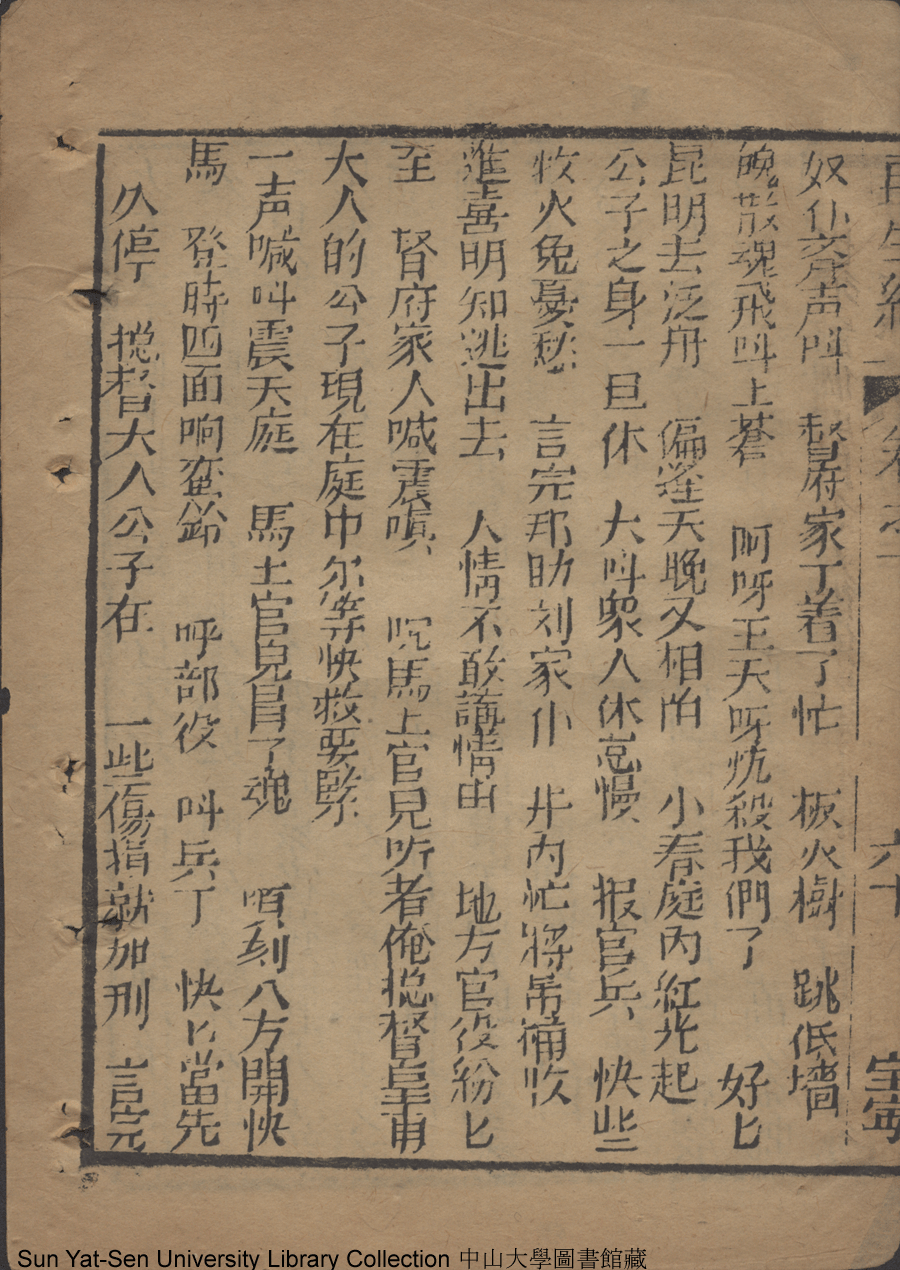 再生緣 卷之 六十
奴仆齐声叫 督府家丁着了忙 扳火樹 跳低墻
魄散魂飛叫上蒼 阿呀王天呀炕殺我們了 好匕
昆明去泛舟 偏逢天晚又相留 小春庭內紅光起
公子之身一旦休 大叫眾人休怠慢 报官兵 快些
牧火免憂愁 言完邦助刘家仆 井內忙將吊桶收
進喜明知逃出去 人情不敢講情由 地方官役紛匕
至 督府家人喊震嗔 阮馬上官見听者俺捴督皇甫
大人的公子現在庭中尔等快救要緊
一声喊叫震天庭 馬上官兒冒了魂 頃刻八方開快
馬 登時四面响鸾鈴 呼部役 叫兵丁 快匕當先
久停 捴督大人公子在 一些傷損就加刑 言完
Sun Yat-Sen University Library Collection 中山大學圖書館藏